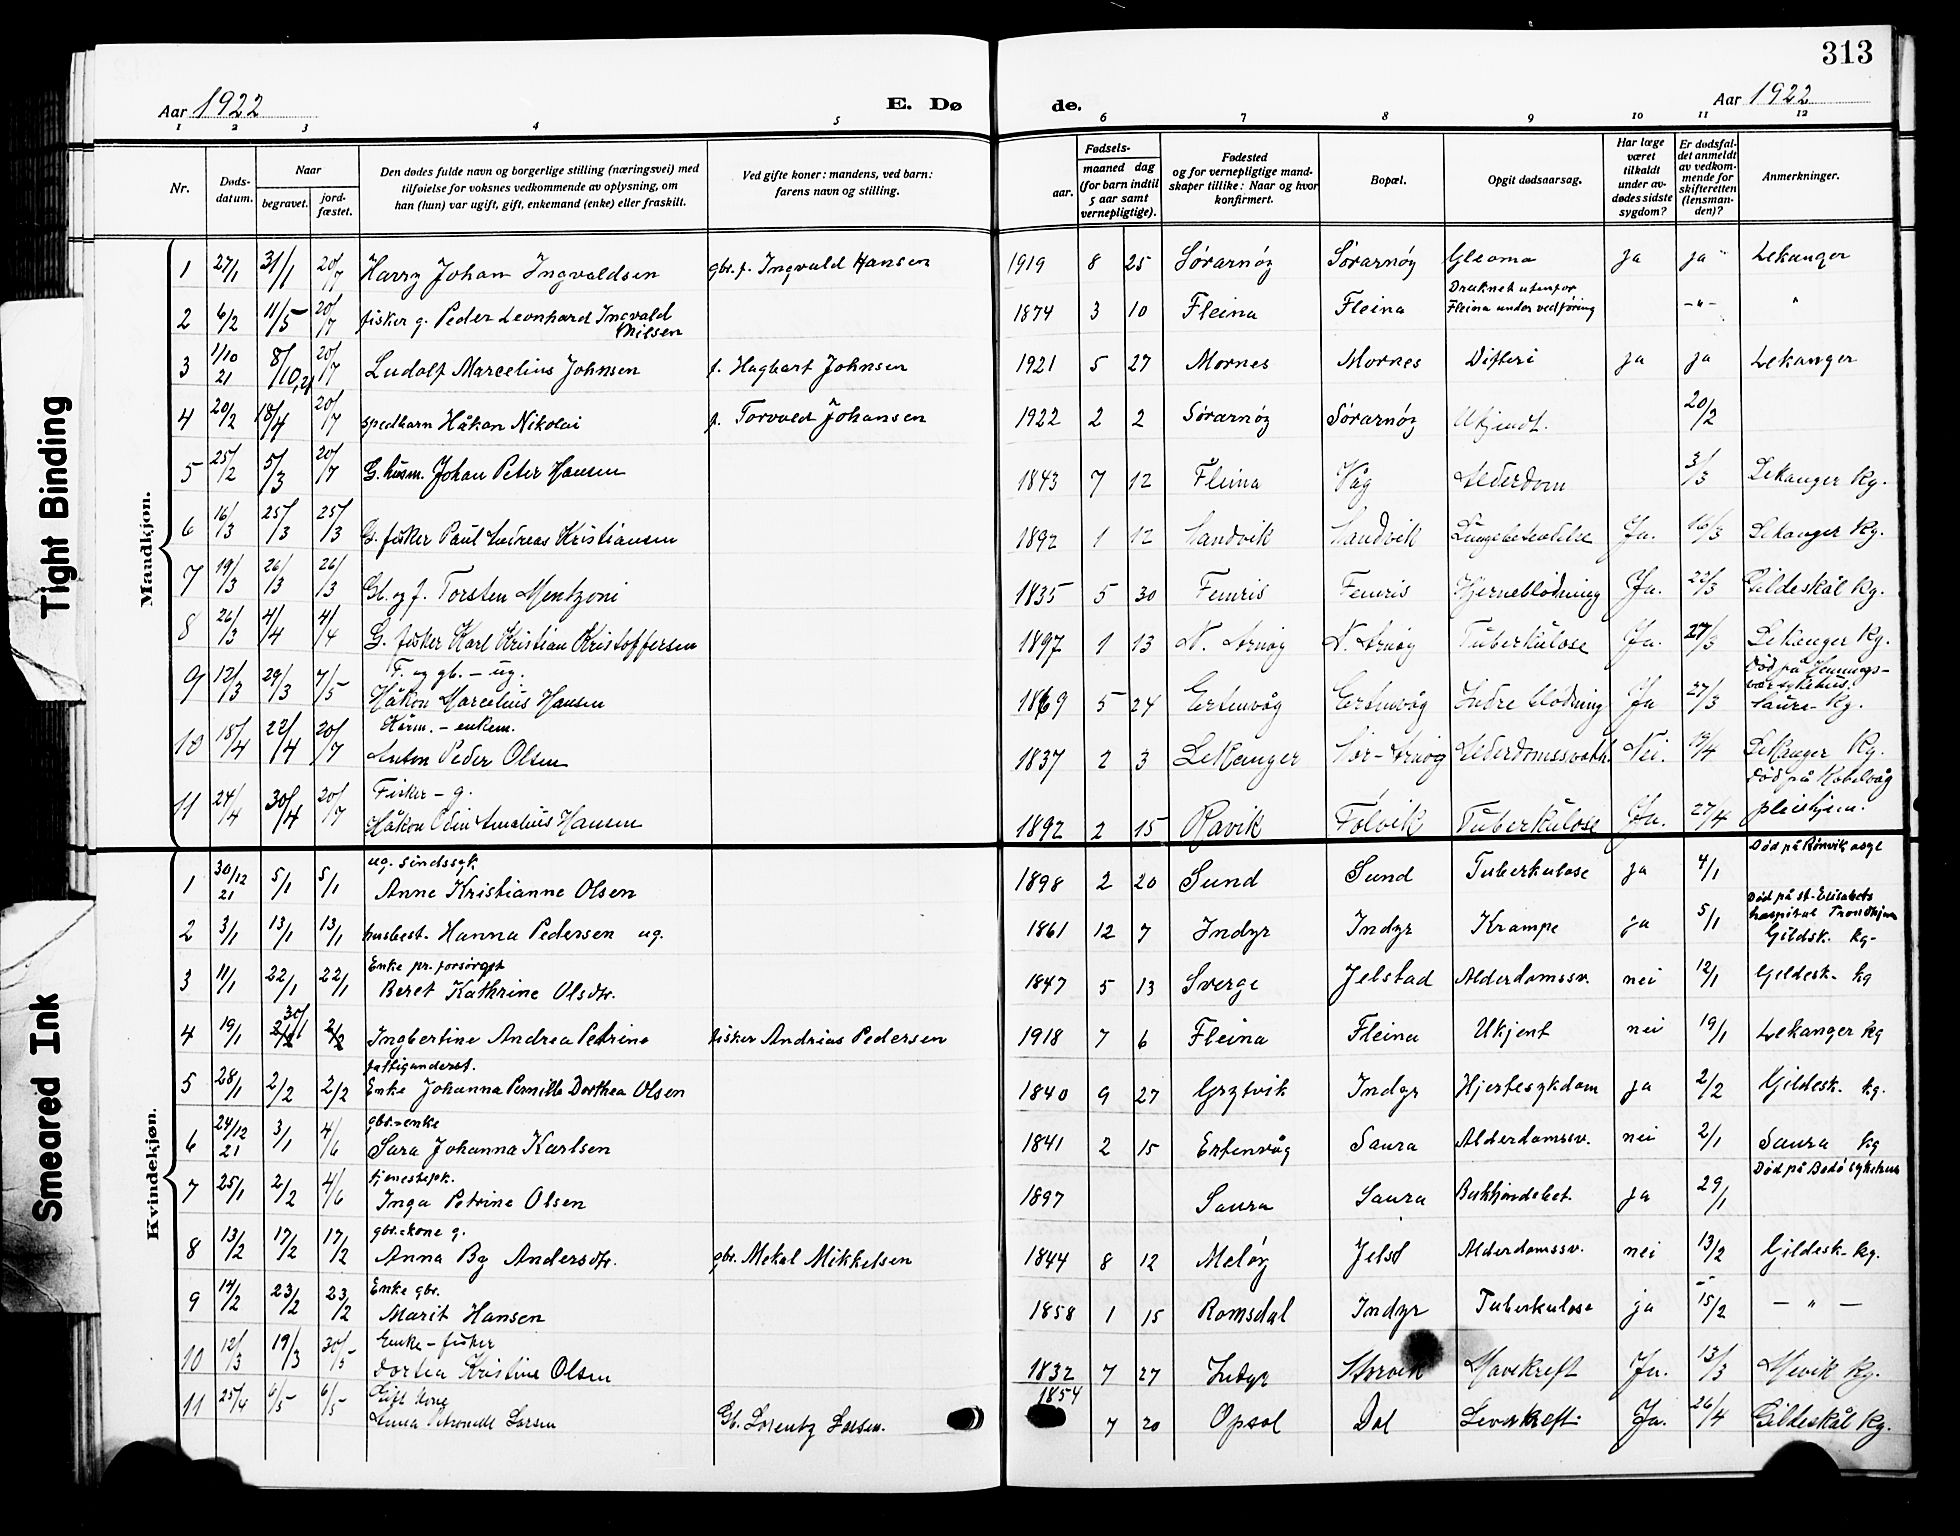 313
Aar 1922 E. Døde. Aar 1922
1 2 3 4 5 6 7 8 9 10 11 12
Nr. | Døds-datum. | Naar begravet. | jord-fæstet. | Den dødes fulde navn og borgerlige stilling (næringsvei) med tilføielse for voksnes vedkommende av oplysning, om han (hun) var ugift, gift, enkemand (enke) eller fraskilt. | Ved gifte koner: mandens, ved barn: farens navn og stilling. | Fødsels- aar. | maaned dag (for barn indtil 5 aar samt vernepligtige). | Fødested og for vernepligtige mandskaper tillike: Naar og hvor konfirmert. | Bopæl. | Opgit dødsaarsag. | Har læge været tilkaldt under avdødes sidste sygdom? | Er dødsfaldet anmeldt av vedkommende for skifteretten (lensmanden)? | Anmerkninger.
Mandkjøn.
1 27/1 31/1 20/7 Harry Johan Ingvaldsen gbr. f. Ingvald Hansen 1919 8 25 Sørarnøy Sørarnøy ja ja Lekanger
2 6/2 11/5 20/7 fisker g. Peder Leonhard Ingvald Nilsen 1874 3 10 Fleina Fleina Druknet utenfor Fleina under vedføring -"- "
3 1/10 21 8/10,21 20/7 Ludolf Marcelius Johnsen f. Hagbart Johnsen 1921 5 27 Mornes Mornes Difteri ja ja Lekanger
4 20/2 18/4 20/7 spedbarn Håkon Nikolai f. Torvald Johansen 1922 2 2 Sørarnøy Sørarnøy Ukjendt. 20/2
5 25/2 5/3 20/7 G. husm. Johan Peter Hansen 1843 7 12 Fleina Våg Alderdom 3/3 Lekanger Kg.
6 16/3 25/3 25/3 G. fisker Paul Andreas Kristiansen 1892 1 12 Sandvik Sandvik Lungebetendelse Ja. 16/3 Lekanger Kg.
7 19/3 26/3 26/3 Gb. og f. Torsten Mentzoni 1835 5 30 Femris Femris Hjerneblødning Ja. 22/3 Gildeskål Kg.
8 26/3 4/4 4/4 G. fisker Karl Kristian Kristoffersen 1897 1 13 N. Arnøy N. Arnøy Tuberkulose Ja. 27/3 Lekanger Kg.
9 12/3 29/3 7/5 F. og gb. - ug. Håkon Marcelius Hansen 1869 5 24 Ertenvåg Ertenvåg Indre blødning Ja 27/3 Død på Henningsvær sykehus. Saura Kg.
10 18/4 22/4 20/7 Kårm. - enkem. Anton Peder Olsen 1837 2 3 Lekanger Sør-Arnøy Alderdomssvakh. Nei. 19/4 Lekanger Kg.
11 24/4 30/4 20/7 Fisker - g. Håkon Odin Amalius Hansen 1892 2 15 Ravik Følvik Tuberkulose Ja. 27/4 Død på Kabelvåg pleiehjem.
Kvindekjøn.
1 30/12 21 5/1 5/1 ug. sindssyk. Anne Kristianne Olsen 1898 2 20 Sund Sund Tuberkulose ja 4/1 Død på Rønvik asyl
2 3/1 13/1 13/1 husbest. Hanna Pedersen ug. 1861 12 7 Indyr Indyr Krampe ja 5/1 Død på St. Elisabets hospital Trondhjem Gildsk. kg-
3 11/1 22/1 22/1 Enke pr. forsørget Beret Kathrine Olsdtr. 1847 5 13 Sverge Jelstad Alderdomssv. nei 12/1 Gildesk- kg
4 19/1 30/1 2/2 Ingbertine Andrea Petrine fisker Andrias Pedersen 1918 7 6 Fleina Fleina Ukjent nei 19/1 Lekanger kg
5 28/1 2/2 2/2 fattigunderst. Enke Johanna Pernille Dorthea Olsen 1840 9 27 Grytvik Indyr Hjertesykdom ja 2/2 Gildesk- kg.
6 24/12 21 3/1 4/6 gbr.-enke Sara Johanna Karlsen 1841 2 15 Ertenvåg Saura Alderdomssv. nei 2/1 Saura kg
7 25/1 2/2 4/6 tjenestepk. Inga Petrine Olsen 1897 Saura Saura ja 29/1 Død på Bodø sykehus
8 13/2 17/2 17/2 gbr.-kone g. Anna By Andersdtr. gbr. Mekal Mikkelsen 1844 8 12 Meløy Jelst Alderdomssv. nei 13/2 Gildesk- kg.
9 14/2 23/2 23/2 Enke gbr. Marit Hansen 1858 1 15 Romsdal Indyr Tuberkulose ja 15/2 - " -
10 12/3 19/3 30/5 Enke - fisker Dortea Kristine Olsen 1832 7 27 Indyr Storvik Mavekreft Ja. 13/3 Mevik Kg.
11 25/4 6/5 6/5 Gift kone Anna Petronelle Larsen Gb. Lorentz Larsen. 1854 7 20 Opsal Dal Leverkreft Ja. 26/4 Gildeskål Kg.
Tight Binding
Smeared Ink